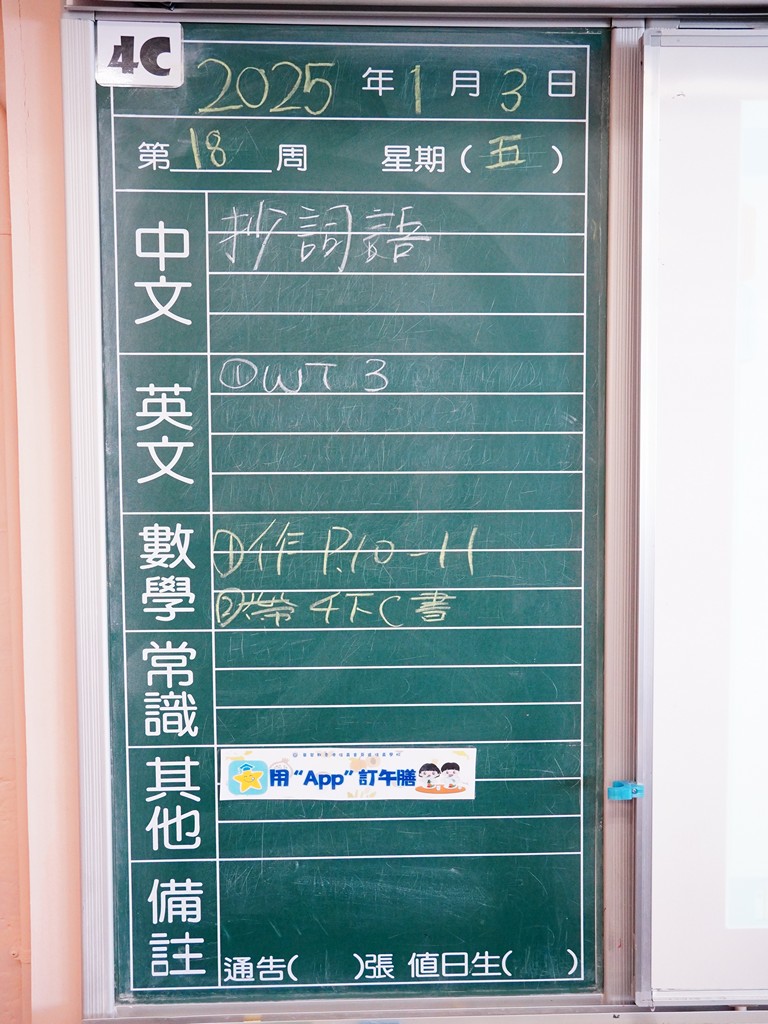 4C
2025年1月3日
第18周 星期(五)
中文
抄詞語
英文
①WT 3
數學
①作 P.10-11
②携帶 4下C書
常識
其他
用“App”訂午膳
備註
通告( )張 值日生( )